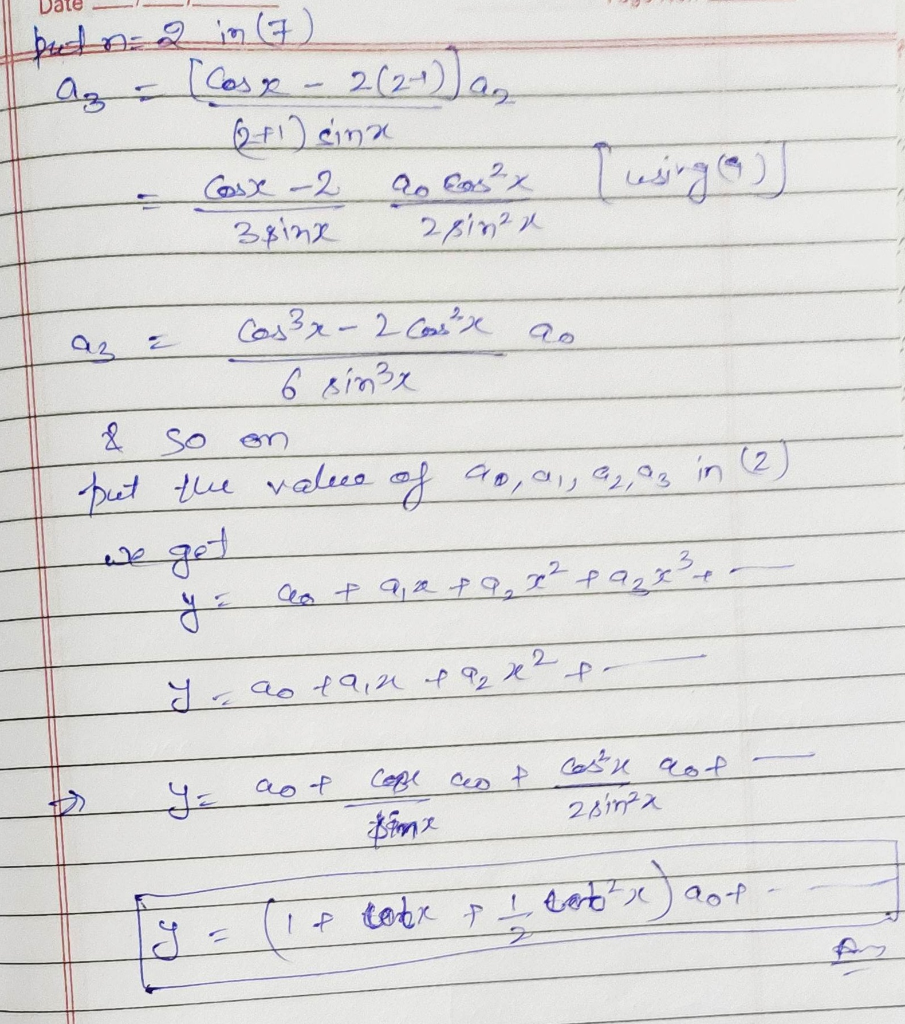 Date
put n = 2 in (7)
a₃ = [Cos x - 2(2-1)] a₂
(2+1) sin x
= Cos x - 2 a₀ Cos² x [using (9)]
3 sin x 2 sin² x
a₃ = Cos³x - 2 Cos²x a₀
6 sin³x
& so on
put the value of a₀, a₁, a₂, a₃ in (2)
we get
y = a₀ + a₁x + a₂x² + a₃x³ + —
y = a₀ + a₁x + a₂x² + —
⇒ y = a₀ + Cos x a₀ + Cos²x a₀ + —
sin x 2 sin²x
y = (1 + cot x + 1/2 cot²x) a₀ + - —
Ans